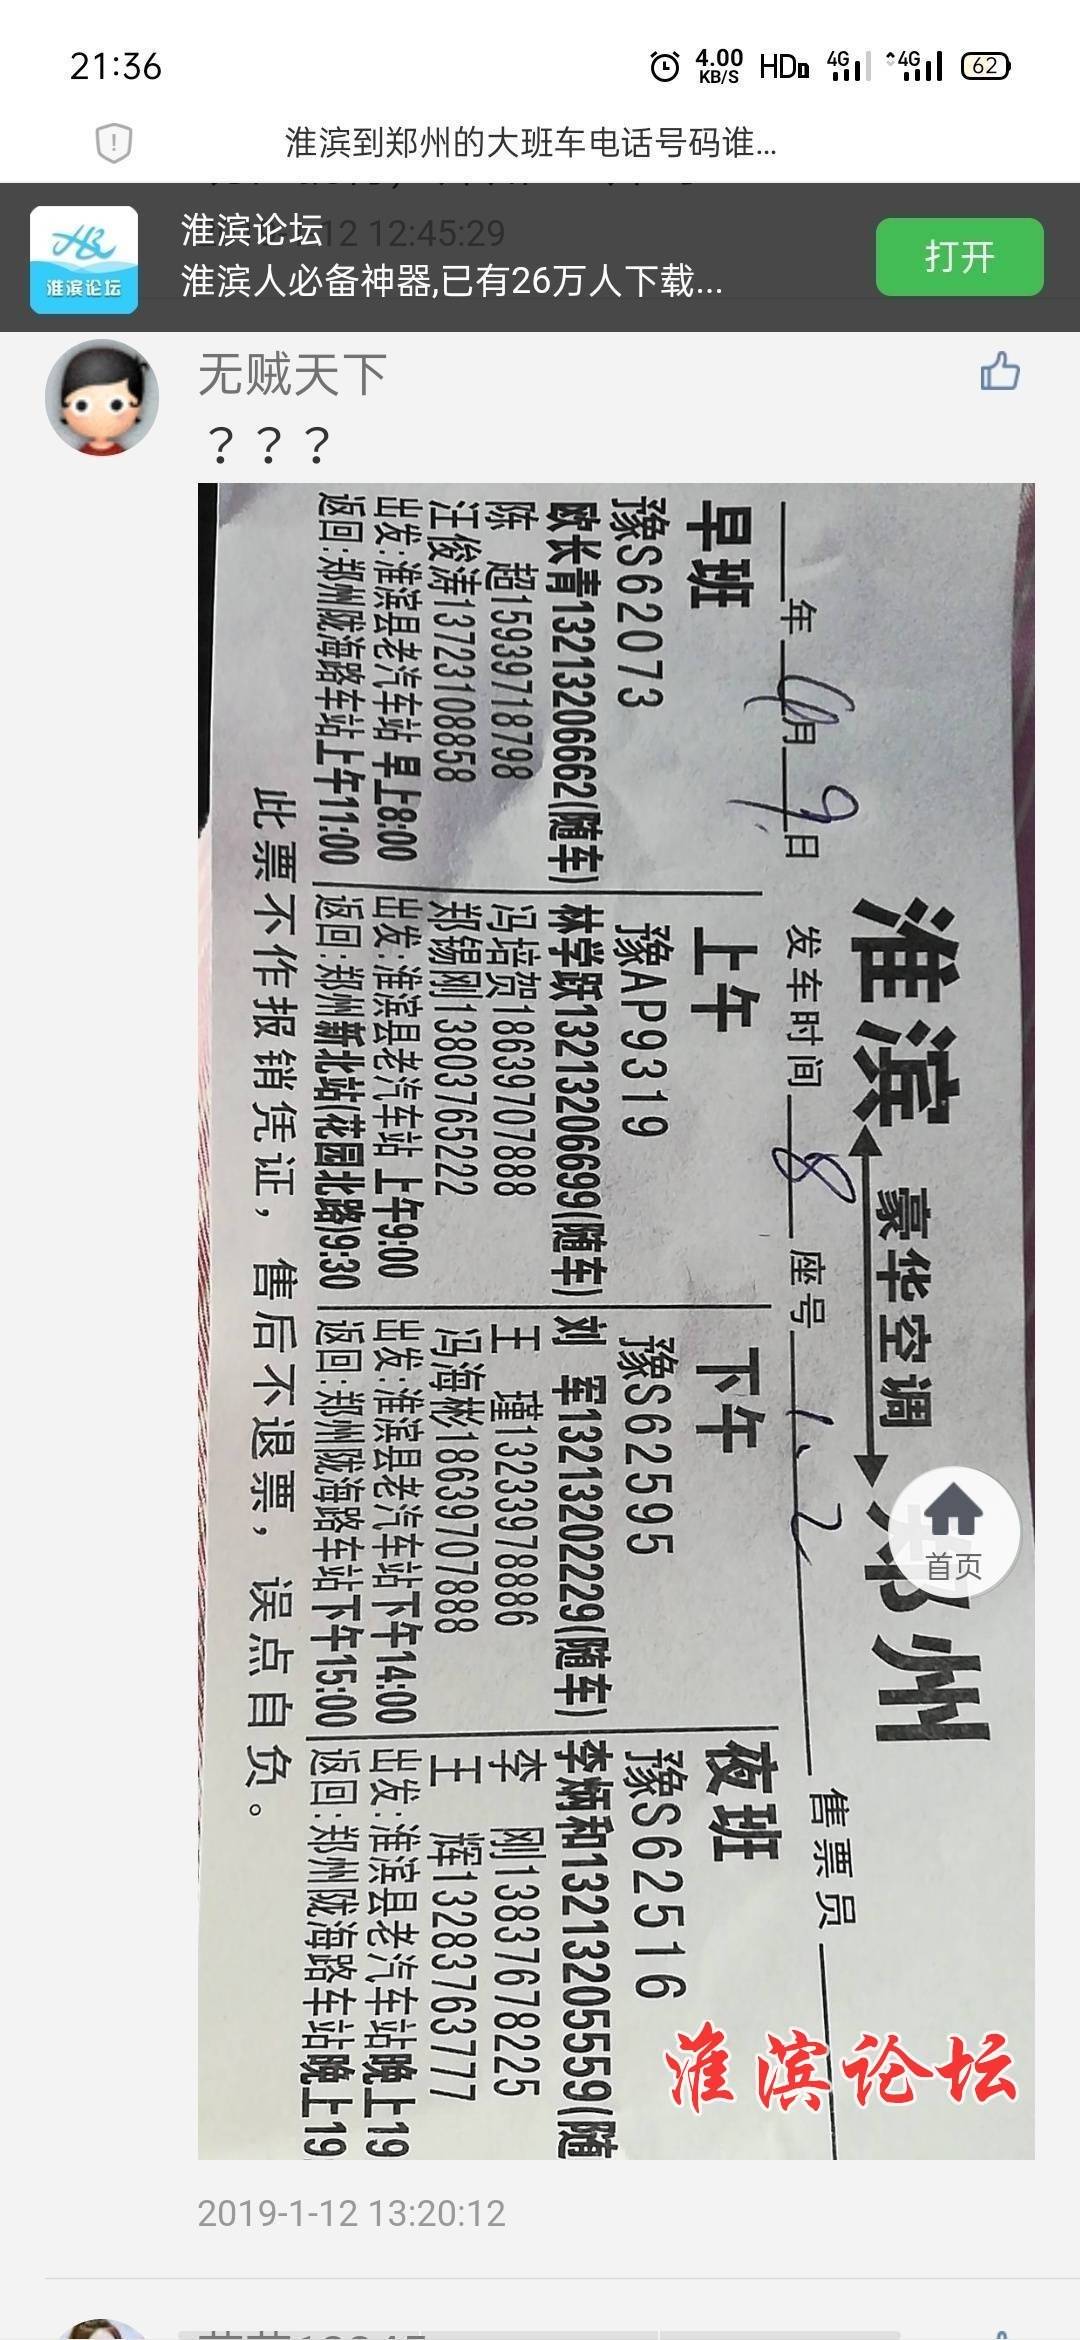 21:36
4.00 KB/S HD 4G 4G 62
淮滨到郑州的大班车电话号码谁...
12 12:45:29
淮滨论坛
淮滨论坛
淮滨人必备神器,已有26万人下载...
打开
无贼天下
？？？
淮滨 豪华空调 郑州
年 月9日 发车时间 8 座号 1、2 售票员
早班
豫S62073
欧长青13213206662(随车)
陈 超15939718798
汪俊涛13723108858
出发:淮滨县老汽车站 早上8:00
返回:郑州陇海路车站上午11:00
上午
豫AP9319
林学跃13213206699(随车)
冯培贺18639707888
郑锡刚13803765222
出发:淮滨县老汽车站 上午9:00
返回:郑州新北站(花园北路)9:30
下午
豫S62595
刘 军13213202229(随车)
王 瑾13233978886
冯海彬18639707888
出发:淮滨县老汽车站下午14:00
返回:郑州陇海路车站下午15:00
夜班
豫S62516
李炳和13213205559(随
李 刚13837678225
王 辉13283763777
出发:淮滨县老汽车站晚上19
返回:郑州陇海路车站晚上19
此票不作报销凭证，售后不退票，误点自负。
首页
淮滨论坛
2019-1-12 13:20:12